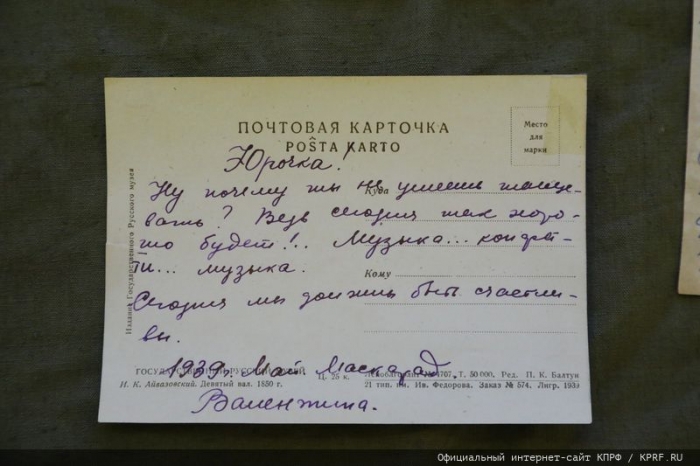 ПОЧТОВАЯ КАРТОЧКА
POŜTA KARTO
Место
для
марки
Юрочка!
Ну почему ты не умеешь танце-
Куда
вать? Ведь сегодня так хоро-
шо будет!.. Музыка... конфет-
ти... музыка.
Кому
Сегодня мы должны быть счастли-
вы.
1939г. Май Маскарад.
Валентина.
Издание Государственного Русского музея
ГОСУДАРСТВЕННЫЙ РУССКИЙ МУЗЕЙ
И. К. Айвазовский. Девятый вал. 1850 г.
Ц. 25 к.
Леноблгорлит № 1707. Т. 50 000. Ред. П. К. Балтун
21 тип. им. Ив. Федорова. Заказ № 574. Лигр. 1939
Официальный интернет-сайт КПРФ / KPRF.RU